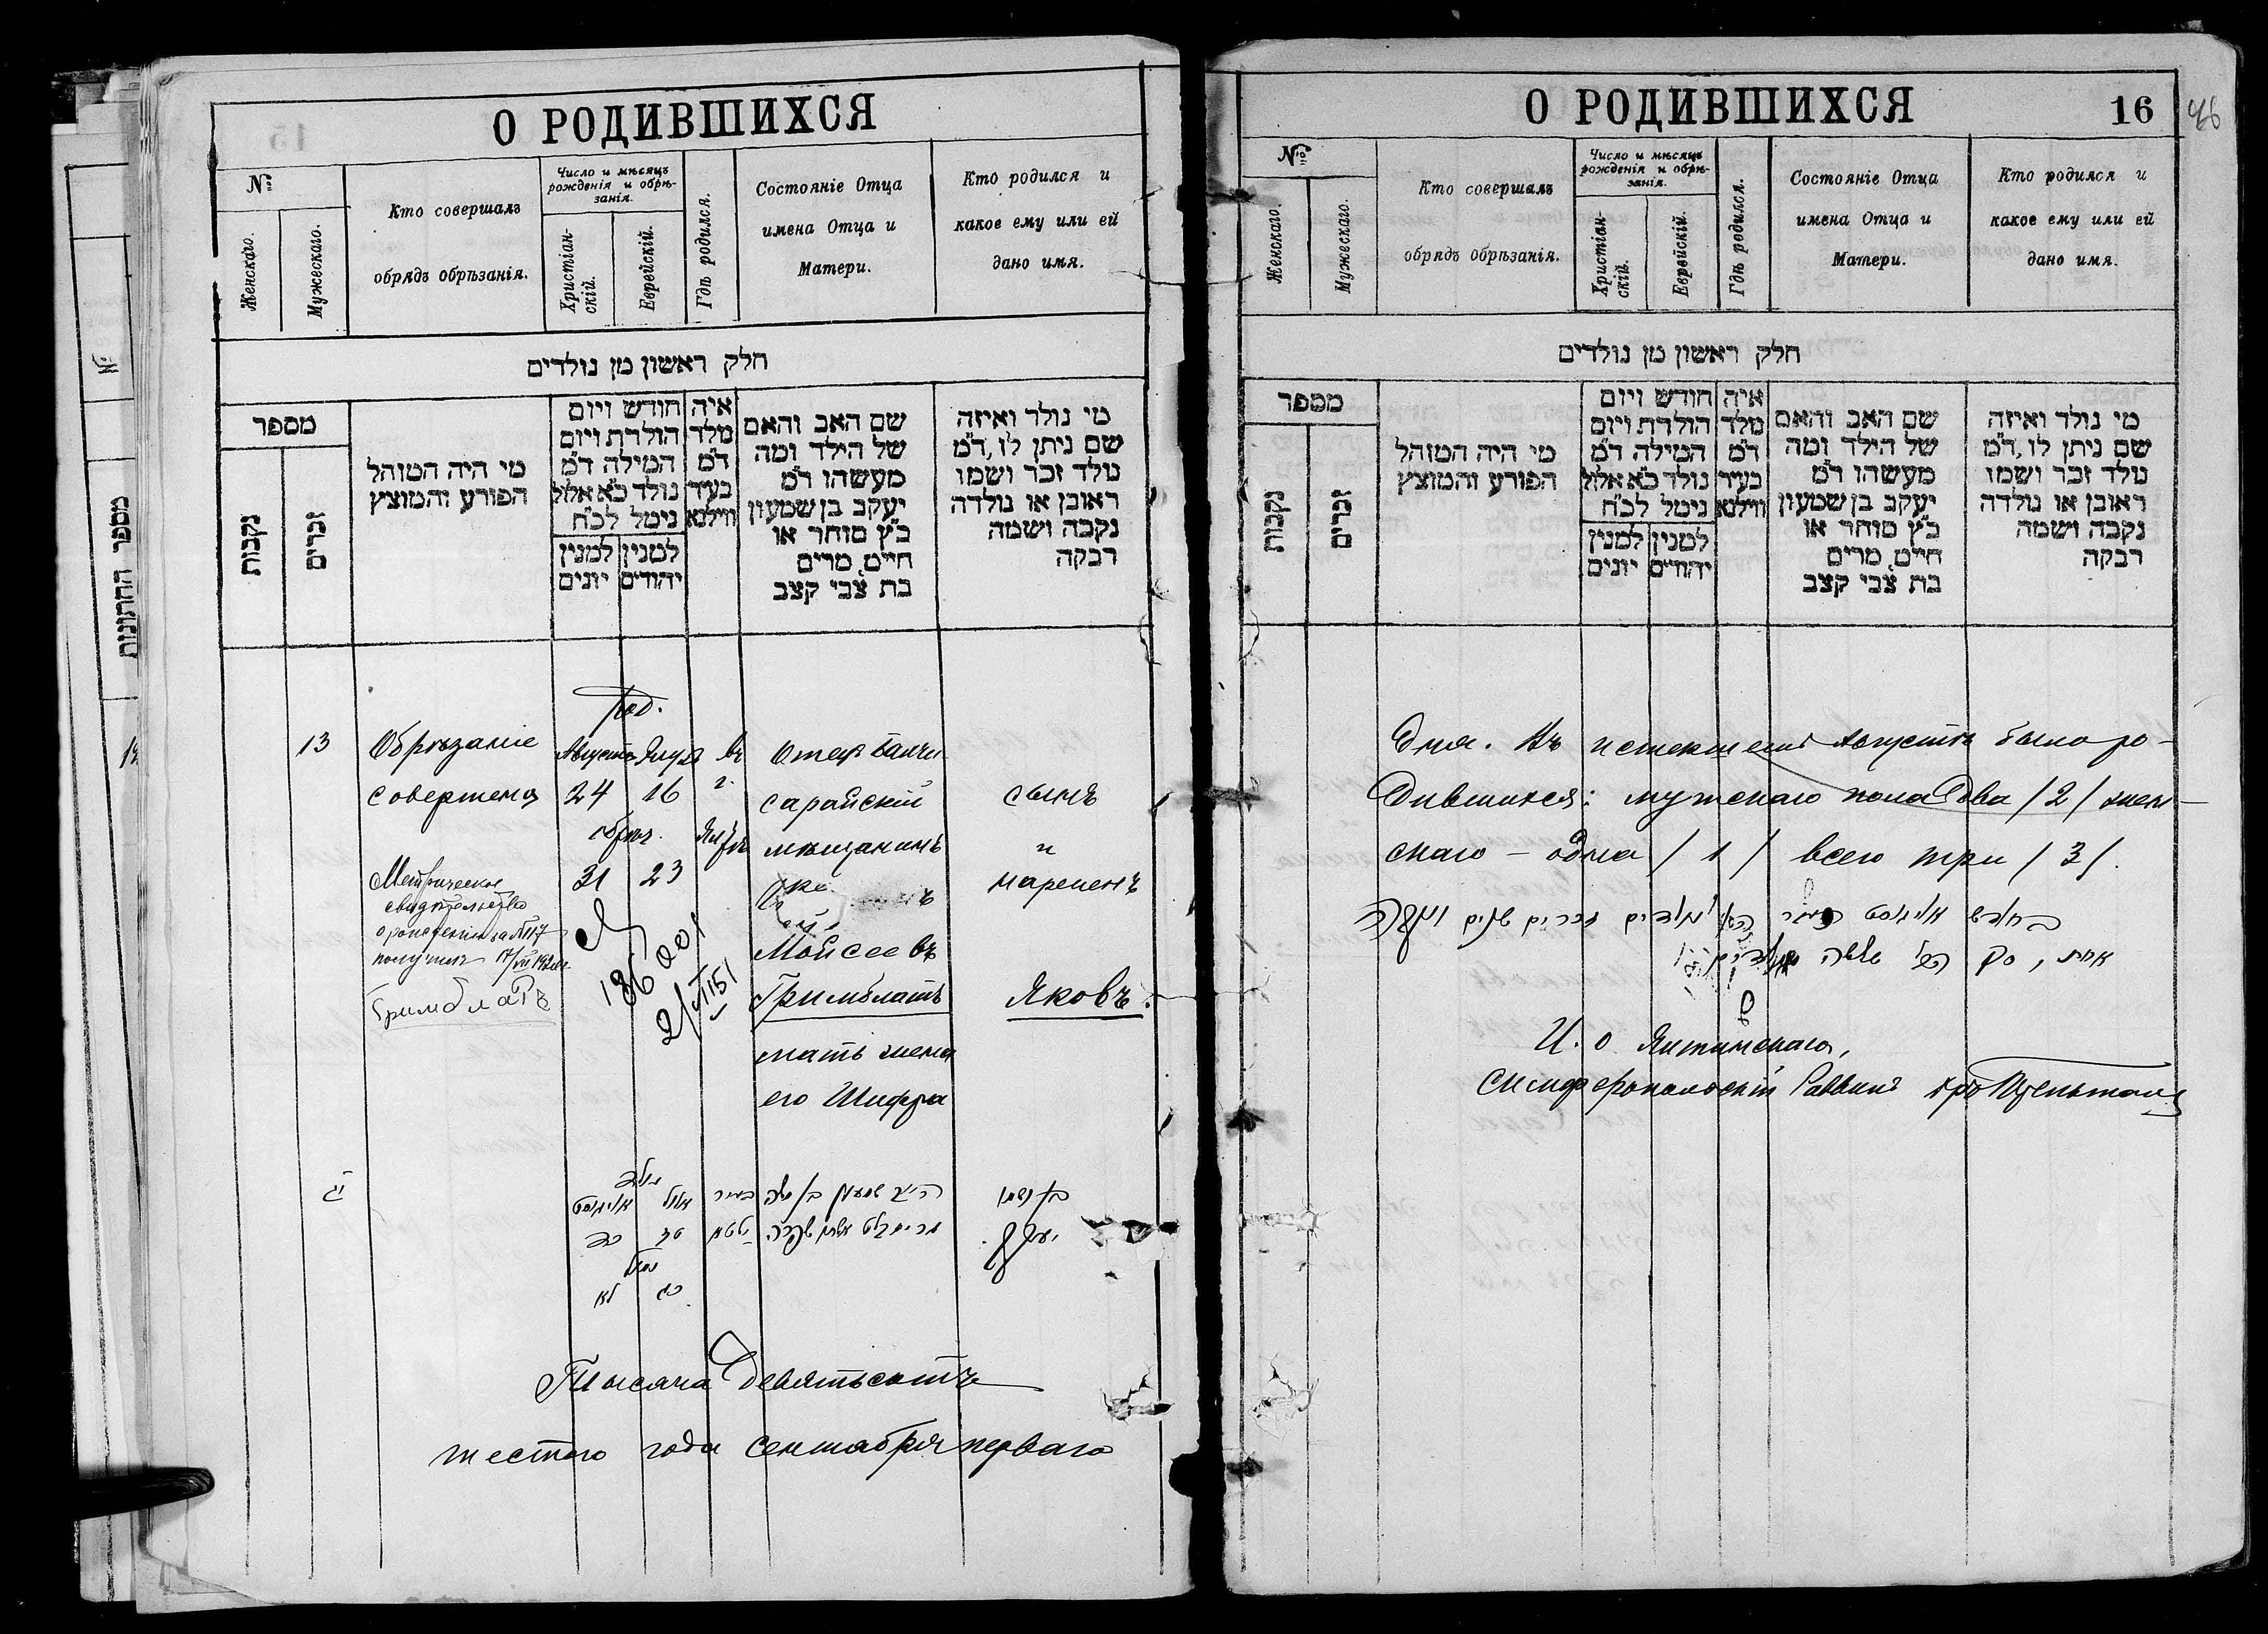 О РОДИВШИХСЯ
№
Женскаго.
Мужескаго.
Кто совершалъ
обрядъ обрѣзанія.
Число и мѣсяцъ
рожденія и обрѣ-
занія.
Христіан-
скій.
Еврейскій.
Гдѣ родился.
Состояніе Отца
имена Отца и
Матери.
Кто родился и
какое ему или ей
дано имя.
חלק ראשון מן נולדים
מספר
נקבות
זכרים
מי היה המוהל
הפורע והמוצץ
חודש ויום
הולדת ויום
המילה ד״מ
נולד כ״א אלול
נימל לכ״ח
למנין
יהודים
למנין
יונים
איה
מלד
ד״מ
בעיר
ווילנא
שם האב והאם
של הילד ומה
מעשהו ד״מ
יעקב בן שמעון
כ״ץ סוחר או
חייט, מרים
בת צבי קצב
מי נולד ואיזה
שם ניתן לו, ד״מ
מלד זכר ושמו
ראובן או נולדה
נקבה ושמה
רבקה
13
Обрѣзаніе
совершена
Метрическое
свидѣтельство
о рожденіи за №117
получилъ 17/VII
Гримблатъ
Род.
Августа
24 16
обрѣз.
31 23
въ
г.
Отецъ Бахчи-
сарайскій
мѣщанинъ
Мойсеевъ
Гримблатъ
мать жена
его Шифра
сынъ
и
нареченъ
Яковъ.
יג
נולד
אויגוסט אלול
כד טז
נמול
לא כג
בעיר
בן ושמו
יעקב.
Тысяча девятьсотъ
шестого года сентября перваго
О РОДИВШИХСЯ
16
46
№
Женскаго.
Мужескаго.
Кто совершалъ
обрядъ обрѣзанія.
Число и мѣсяцъ
рожденія и обрѣ-
занія.
Христіан-
скій.
Еврейскій.
Гдѣ родился.
Состояніе Отца
имена Отца и
Матери.
Кто родился и
какое ему или ей
дано имя.
חלק ראשון מן נולדים
מספר
נקבות
זכרים
מי היה המוהל
הפורע והמוצץ
חודש ויום
הולדת ויום
המילה ד״מ
נולד כ״א אלול
נימל לכ״ח
למנין
יהודים
למנין
יונים
איה
מלד
ד״מ
בעיר
ווילנא
שם האב והאם
של הילד ומה
מעשהו ד״מ
יעקב בן שמעון
כ״ץ סוחר או
חייט, מרים
בת צבי קצב
מי נולד ואיזה
שם ניתן לו, ד״מ
מלד זכר ושמו
ראובן או נולדה
נקבה ושמה
רבקה
дня. Въ истекшемъ Августѣ было ро-
дившихся: мужскаго пола два /2/ жен-
скаго — одна /1/ всего три /3/.
בחודש אויגוסט זכרים שנים ונקבה
אחת, סך הכל שלשה
И. о Ялтинскаго,
Симферопольскій Раввинъ